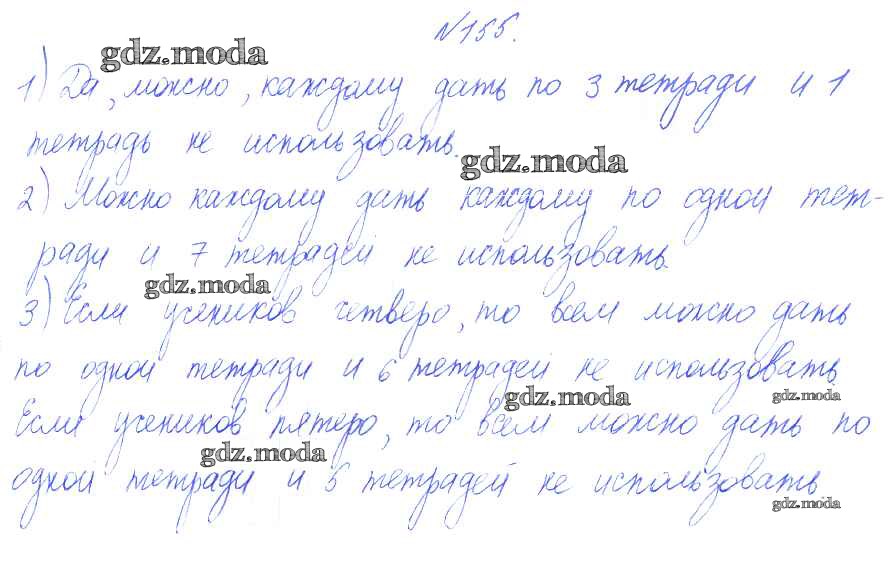 №155.
gdz.moda
1) Да, можно, каждому дать по 3 тетради и 1
тетрадь не использовать.
gdz.moda
2) Можно каждому дать каждому по одной тет-
ради и 7 тетрадей не использовать.
gdz.moda
3) Если учеников четверо, то всем можно дать
по одной тетради и 6 тетрадей не использовать.
gdz.moda
gdz.moda
Если учеников пятеро, то всем можно дать по
gdz.moda
одной тетради и 5 тетрадей не использовать
gdz.moda